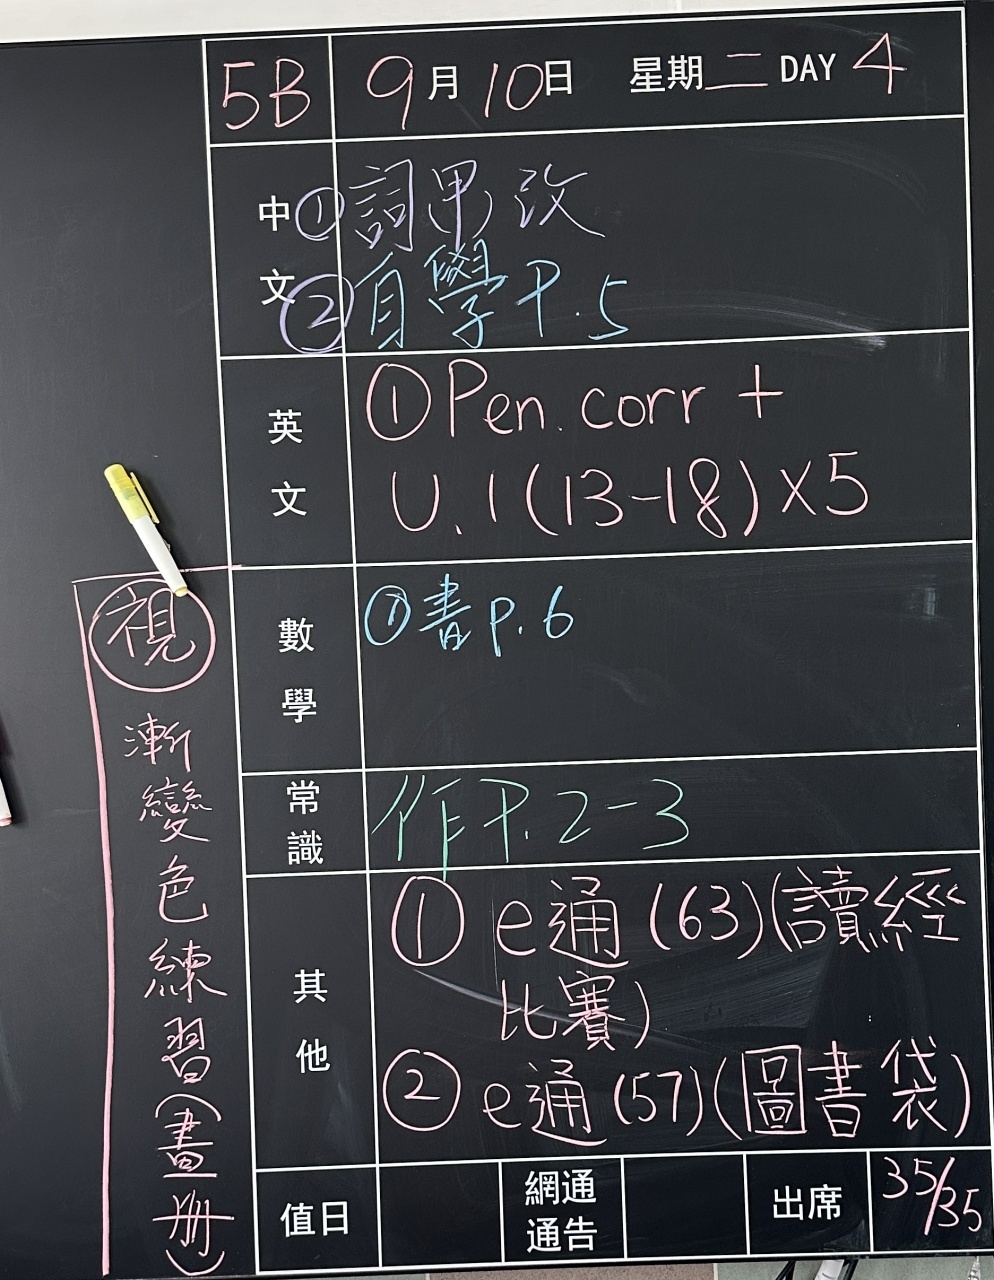 5B 9月10日 星期二 DAY 4
中文 ①詞甲改
②自學P.5
英文 ①Pen. corr +
U.1(13-18)×5
數學 ①書p.6
常識 作P.2-3
其他 ①e通(63)(讀經
比賽)
②e通(57)(圖書袋)
值日 網通通告 出席 35/35
視
漸變色練習(畫册)